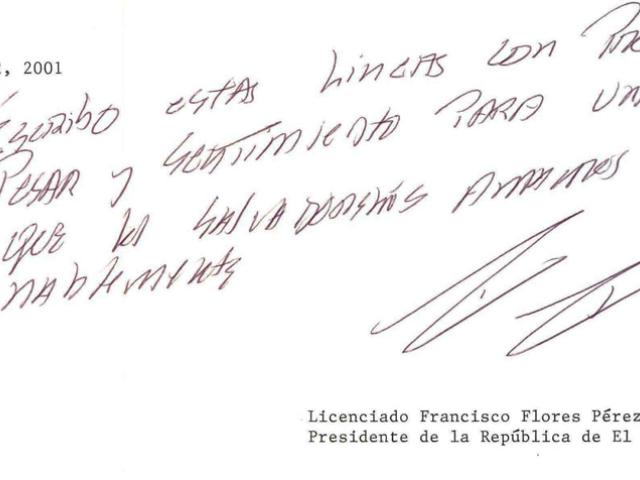 , 2001
Escribo estas lineas con
Pesar y sentimiento para un
que los salvadoreños amamos
nablemente
Licenciado Francisco Flores Pérez
Presidente de la República de El